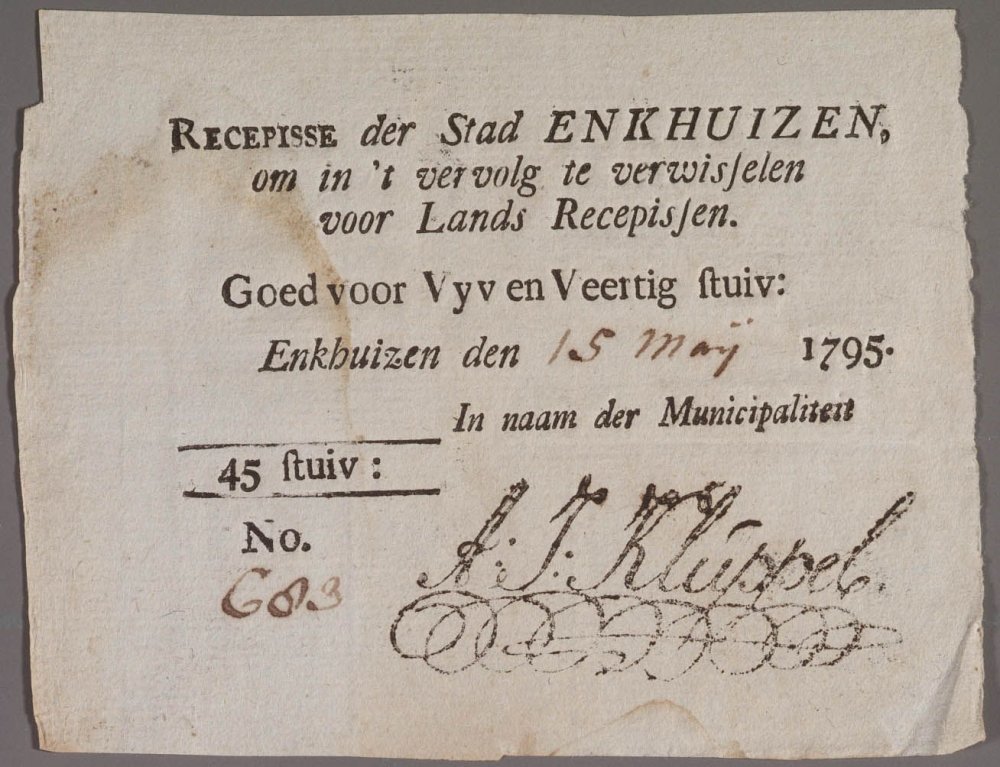 RECEPISSE der Stad ENKHUIZEN,
om in 't vervolg te verwisſelen
voor Lands Recepisſen.
Goed voor Vyv en Veertig ſtuiv:
Enkhuizen den 15 Maÿ 1795.
In naam der Municipaliteit
45 ſtuiv:
No.
683
A: J: Klúppel.